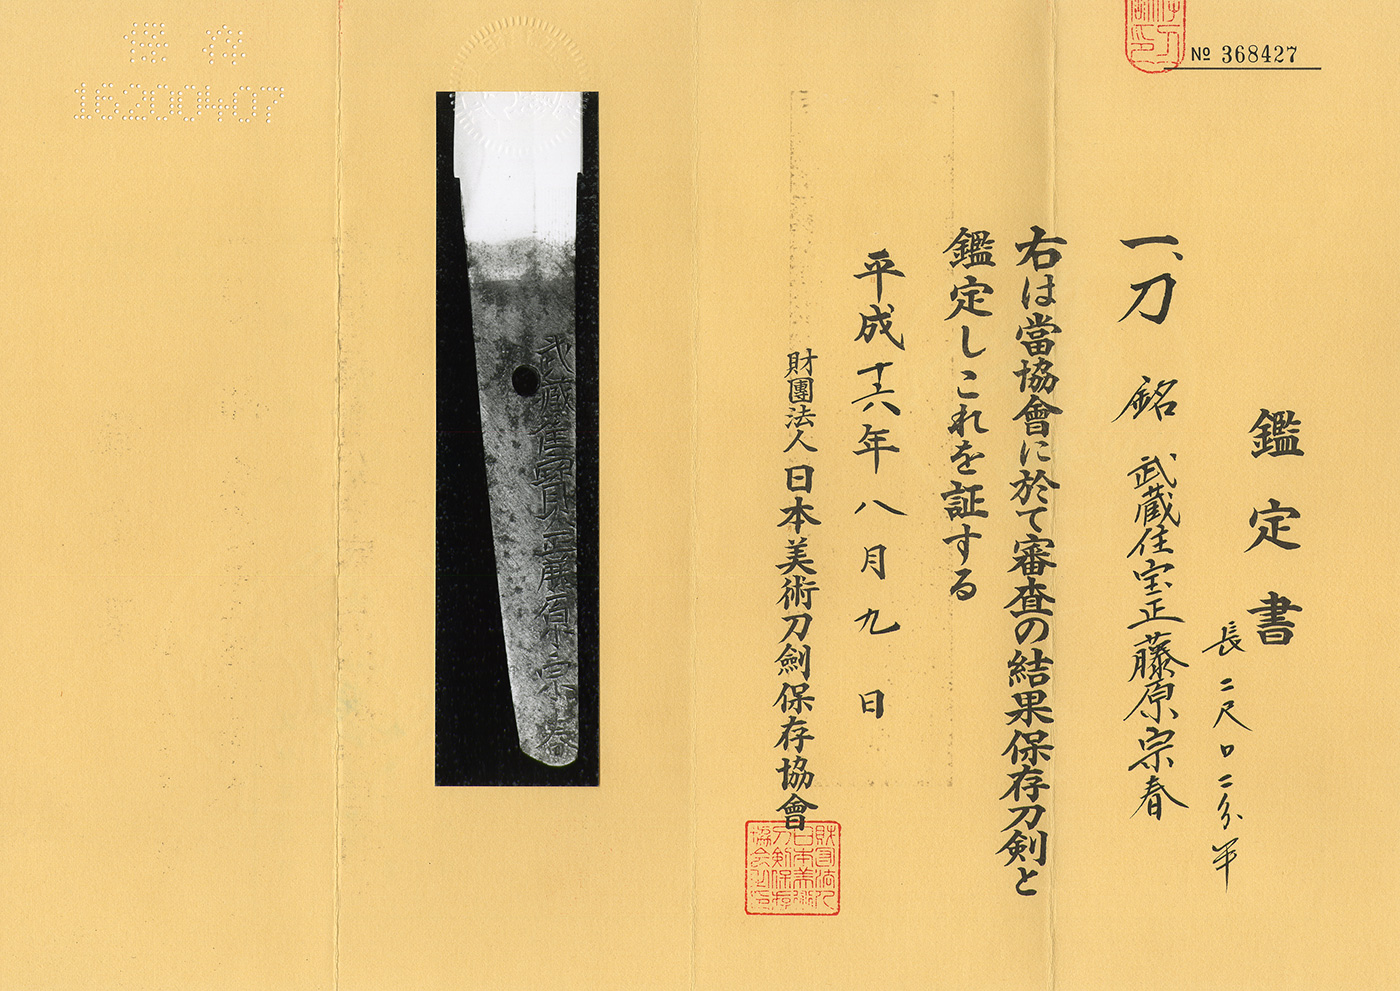 № 368427
鑑定書
一、刀 銘 武蔵住宝正藤原宗春
長 二尺口二分半
右は當協會に於て審査の結果保存刀剣と
鑑定しこれを証する
平成十六年八月九日
財團法人 日本美術刀劍保存協會
財団法人
日本美術
刀剣保存
協会之印
武蔵住寳正藤原宗春
保存
16200407